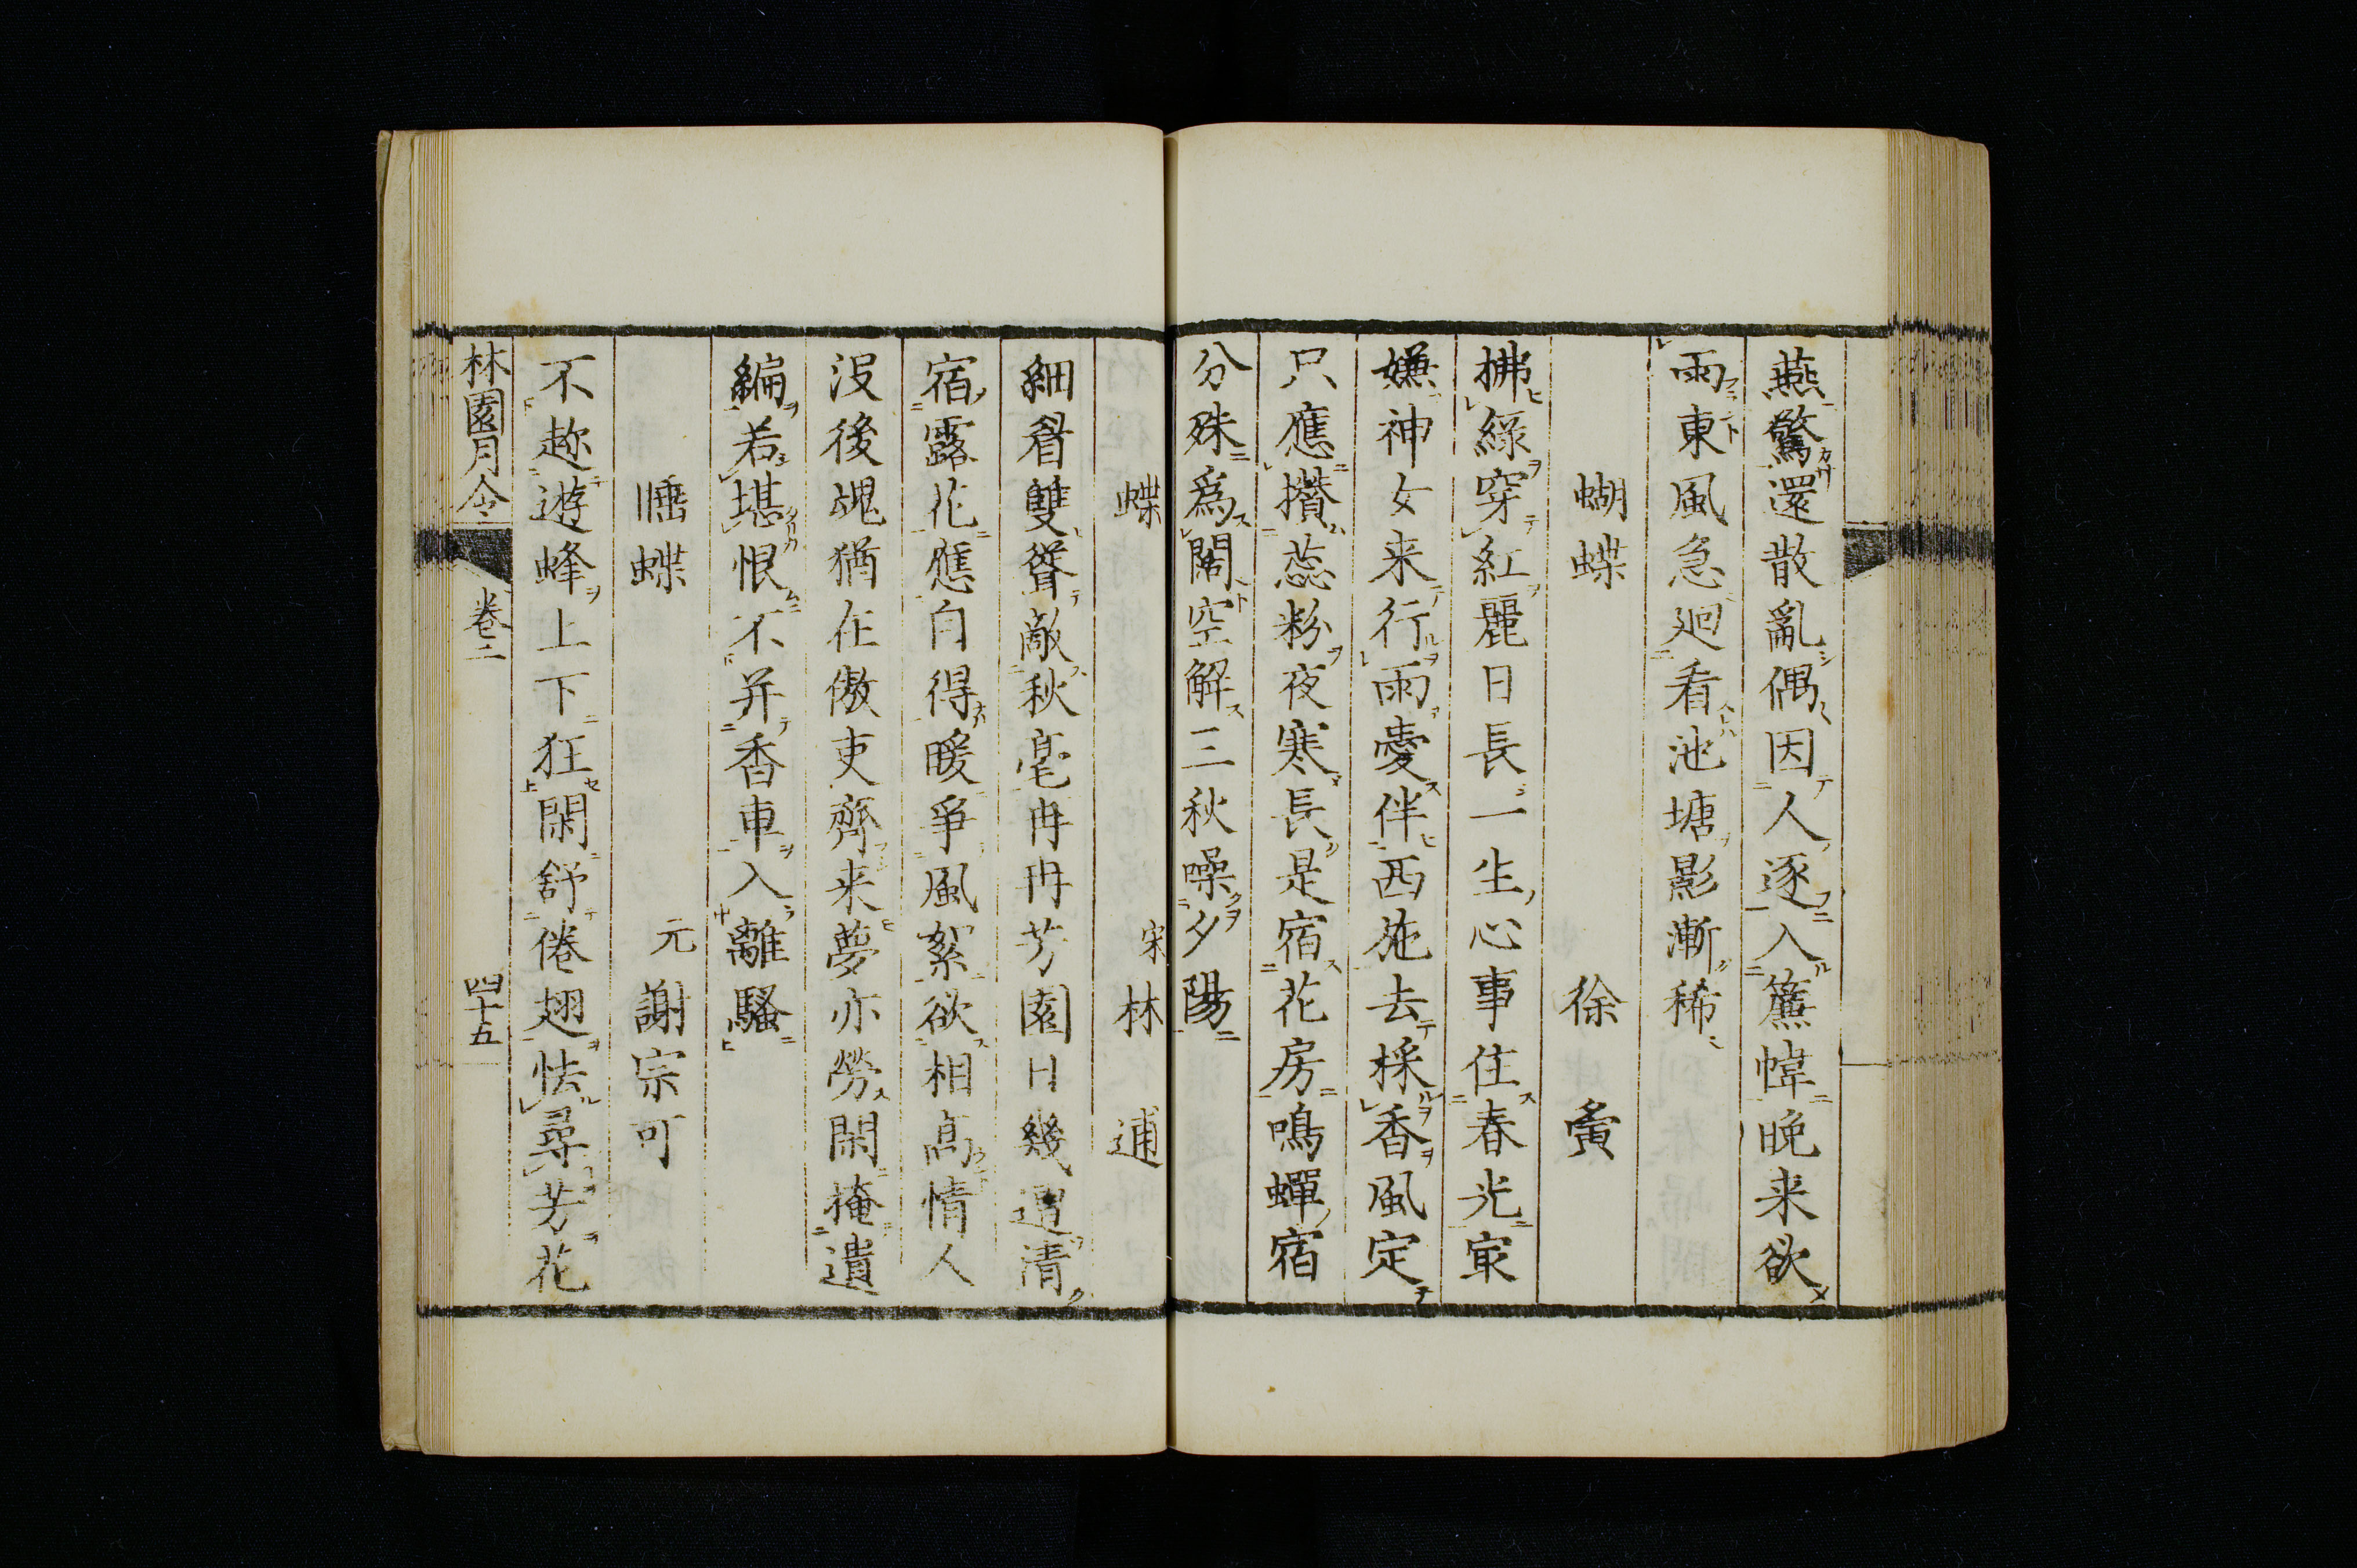 燕驚還散亂偶因人逐入簾幃晚来欲
雨東風急廻看池塘影漸稀
蝴蝶 徐夤
拂緑穿紅麗日長一生心事住春光㝡
嫌神女来行雨愛伴西施去採香風定
只應攢蕊粉夜寒長是宿花房鳴蟬宿
分殊為鬧空解三秋噪夕陽
蝶 宋林逋
細眉雙聳敵秋毫冉冉芳園日幾遭清
宿露花應自得暖爭風絮欲相高情人
沒後魂猶在傲吏齊来夢亦勞閑掩遺
編若堪恨不并香車入離騷
睡蝶 元謝宗可
不趂遊蜂上下狂閑舒倦翅怯尋芳花
林園月令 卷二 四十五